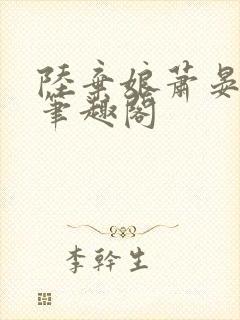 陸棄娘蕭晏
筆趣閣
李幹生